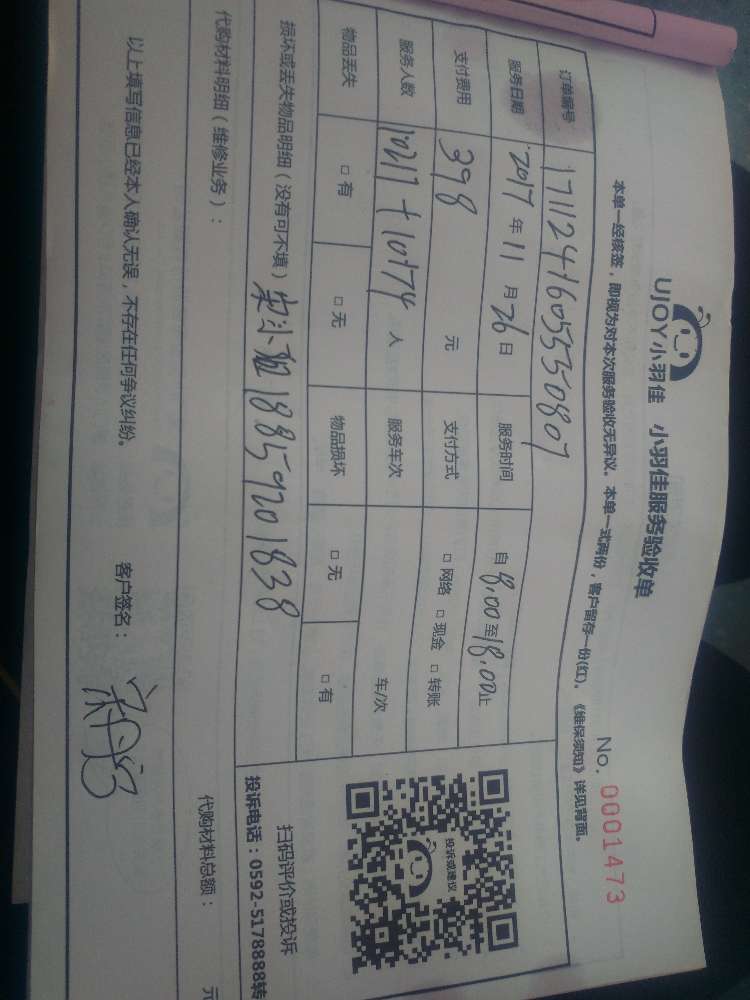 UJOY小羽佳 小羽佳服务验收单
No. 0001473
本单一经核签，即视为对本次服务验收无异议。本单一式两份，客户留存一份(红)。《维保须知》详见背面。
订单编号 1711241605550807
服务日期 2017 年 11 月 26 日 服务时间 自 8:00 至 18:00 止
支付费用 398 元 支付方式 □ 网络 □ 现金 □ 转账
服务人数 10217+10174 人 服务车次 车/次
物品丢失 □ 有 □ 无 物品损坏 □ 无 □ 有
损坏或丢失物品明细（没有可不填） 18859201838
投诉或建议
扫码评价或投诉
投诉电话：0592-5178888转
代购材料明细（维修业务）： 代购材料总额： 元
以上填写信息已经本人确认无误，不存在任何争议纠纷。 客户签名：